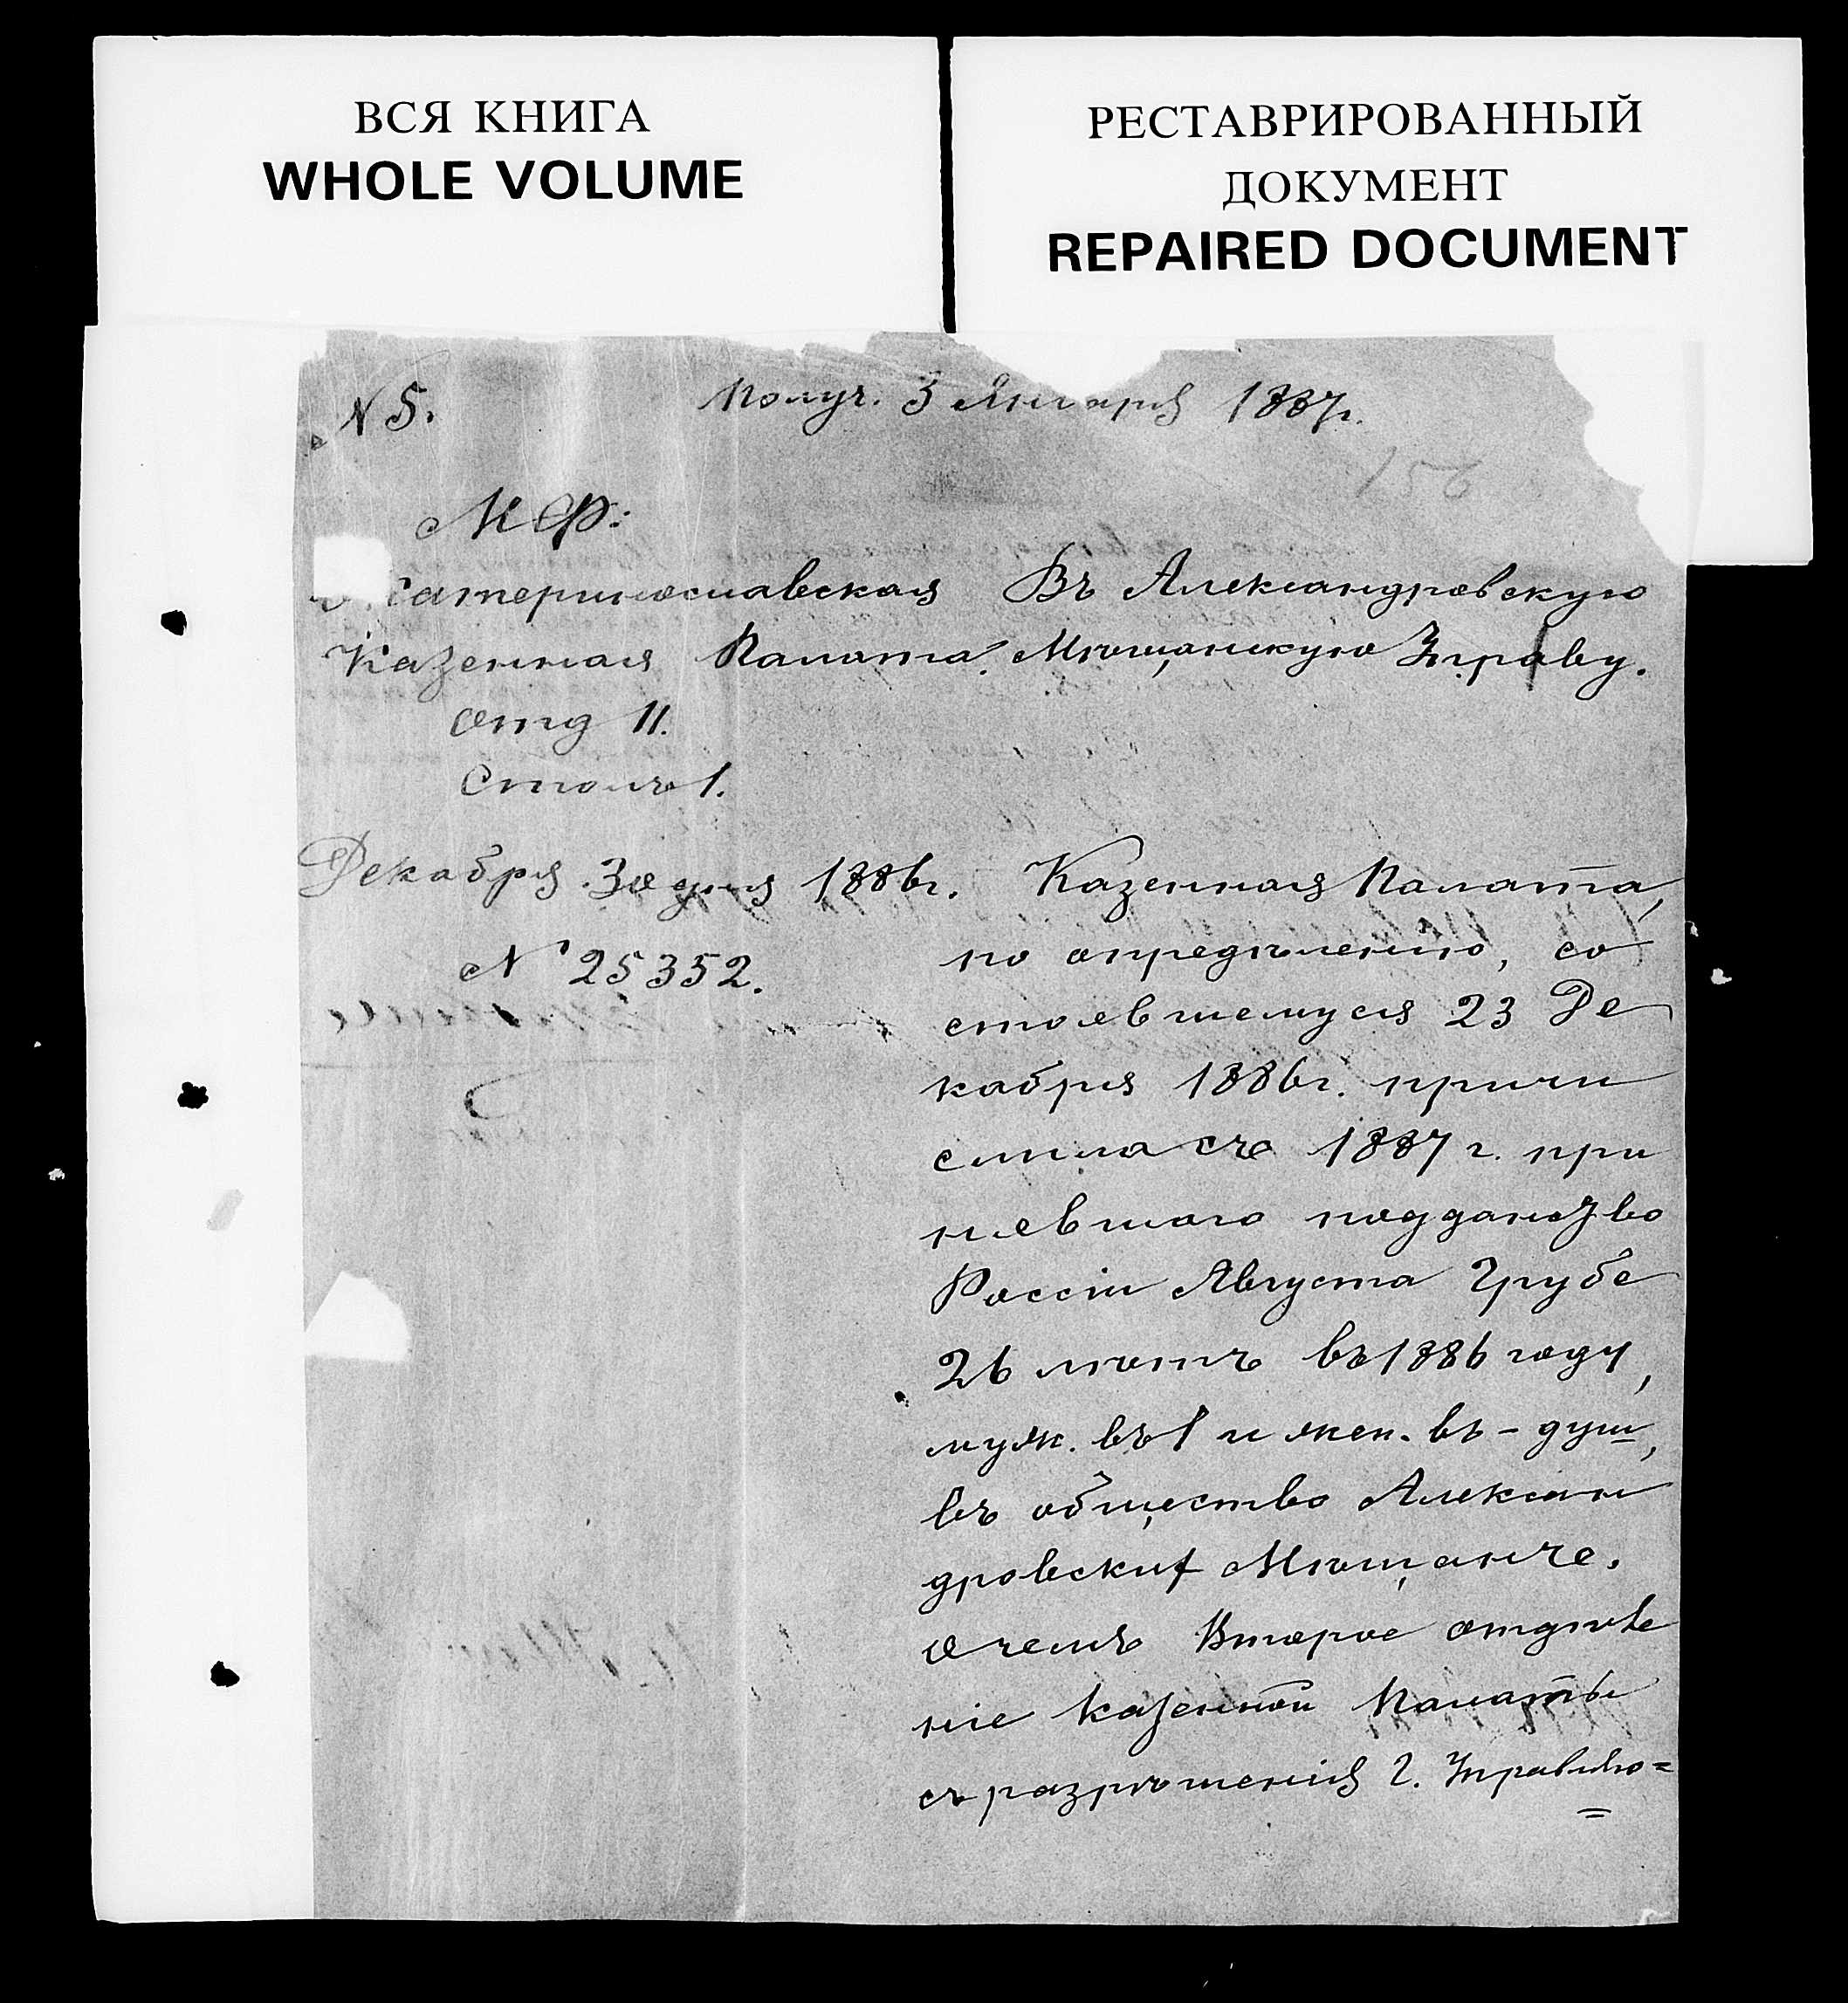 ВСЯ КНИГА
WHOLE VOLUME
РЕСТАВРИРОВАННЫЙ
ДОКУМЕНТ
REPAIRED DOCUMENT
N 5. Получ. 3 Января 1887г.
156
М Ф:
катеринославская
Казенная Палата.
Отд II.
Столъ 1.
Декабря 30 дня 1886г.
N 25352.
Въ Александровскую
Мѣщанскую Управу.
Казенная Палата,
по опредѣленію, со
стоявшемуся 23 Де
кабря 1886г. причи
слила съ 1887 г. при
нявшаго подданство
Россіи Августа Грубе
26 лѣтъ въ 1886 году,
муж. въ 1 и жен. въ - душ,
въ общество Алексан
дровских Мѣщанъ.
О чемъ Второе отдѣле
ніе Казенной Палаты
съ разрѣшенія Г. Управляю=